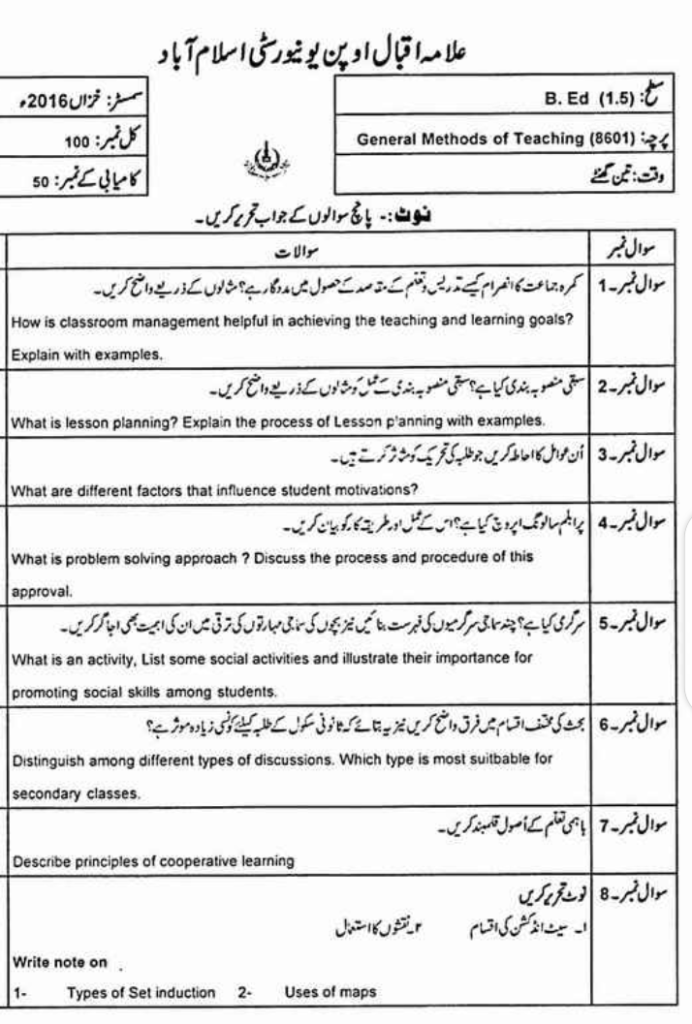 علامہ اقبال اوپن یونیورسٹی اسلام آباد
سطح: B. Ed (1.5)
سمسٹر: خزاں 2016ء
پرچہ: General Methods of Teaching (8601)
کل نمبر: 100
وقت: تین گھنٹے
کامیابی کے نمبر: 50
نوٹ:- پانچ سوالوں کے جواب تحریر کریں۔
سوال نمبر سوالات
سوال نمبر۔1 کمرہ جماعت کا انصرام کیسے تدریس و تعلم کے مقاصد کے حصول میں مددگار ہے؟ مثالوں کے ذریعے واضح کریں۔
How is classroom management helpful in achieving the teaching and learning goals?
Explain with examples.
سوال نمبر۔2 سبقی منصوبہ بندی کیا ہے؟ سبقی منصوبہ بندی کے عمل کو مثالوں کے ذریعے واضح کریں۔
What is lesson planning? Explain the process of Lesson p'anning with examples.
سوال نمبر۔3 اُن عوامل کا احاطہ کریں جو طلبہ کی تحریک کو متاثر کرتے ہیں۔
What are different factors that influence student motivations?
سوال نمبر۔4 پرابلم سالونگ اپروچ کیا ہے؟ اس کے عمل اور طریقہ کار کو بیان کریں۔
What is problem solving approach ? Discuss the process and procedure of this
approval.
سوال نمبر۔5 سرگرمی کیا ہے؟ چند سماجی سرگرمیوں کی فہرست بنائیں نیز بچوں کی سماجی مہارتوں کی ترقی میں ان کی اہمیت بھی اجاگر کریں۔
What is an activity, List some social activities and illustrate their importance for
promoting social skills among students.
سوال نمبر۔6 بحث کی مختلف اقسام میں فرق واضح کریں نیز یہ بتائیے کہ ثانوی سکول کے طلبہ کیلئے کونسی زیادہ موثر ہے؟
Distinguish among different types of discussions. Which type is most suitbable for
secondary classes.
سوال نمبر۔7 باہمی تعلم کے اُصول قلمبند کریں۔
Describe principles of cooperative learning
سوال نمبر۔8 نوٹ تحریر کریں
۱۔ سیٹ انڈکشن کی اقسام ۲۔ نقشوں کا استعمال
Write note on
1- Types of Set induction 2- Uses of maps